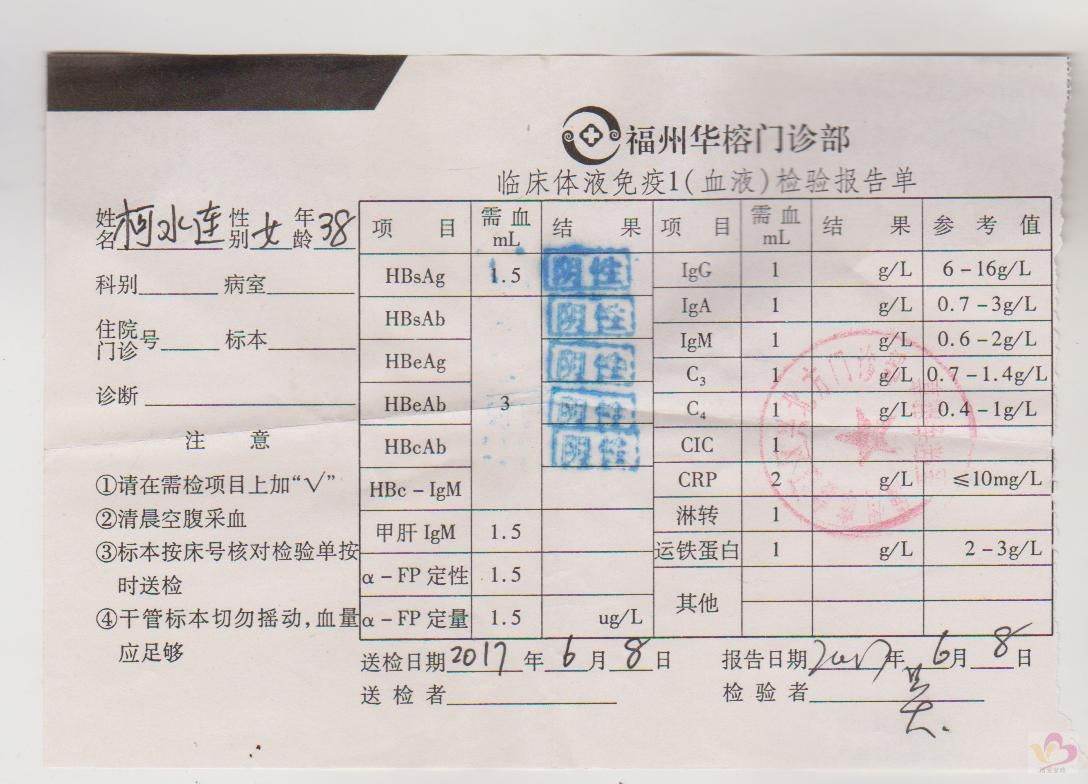 福州华榕门诊部
临床体液免疫1(血液)检验报告单
姓名 柯水连 性别 女 年龄 38
科别 病室
住院门诊号 标本
诊断
注 意
①请在需检项目上加“√”
②清晨空腹采血
③标本按床号核对检验单按
时送检
④干管标本切勿摇动,血量
应足够
项 目 需血mL 结 果 项 目 需血mL 结 果 参考值
HBsAg 1.5 阴性 IgG 1 g/L 6-16g/L
HBsAb 阴性 IgA 1 g/L 0.7-3g/L
HBeAg 阴性 IgM 1 g/L 0.6-2g/L
HBeAb 3 阴性 C₃ 1 g/L 0.7-1.4g/L
HBcAb 阴性 C₄ 1 g/L 0.4-1g/L
HBc-IgM CIC 1
甲肝 IgM 1.5 CRP 2 g/L ≤10mg/L
α-FP 定性 1.5 淋转 1
α-FP 定量 1.5 ug/L 运铁蛋白 1 g/L 2-3g/L
其他
送检日期 2017 年 6 月 8 日 报告日期 2017 年 6 月 8 日
送检者 检验者
门诊部